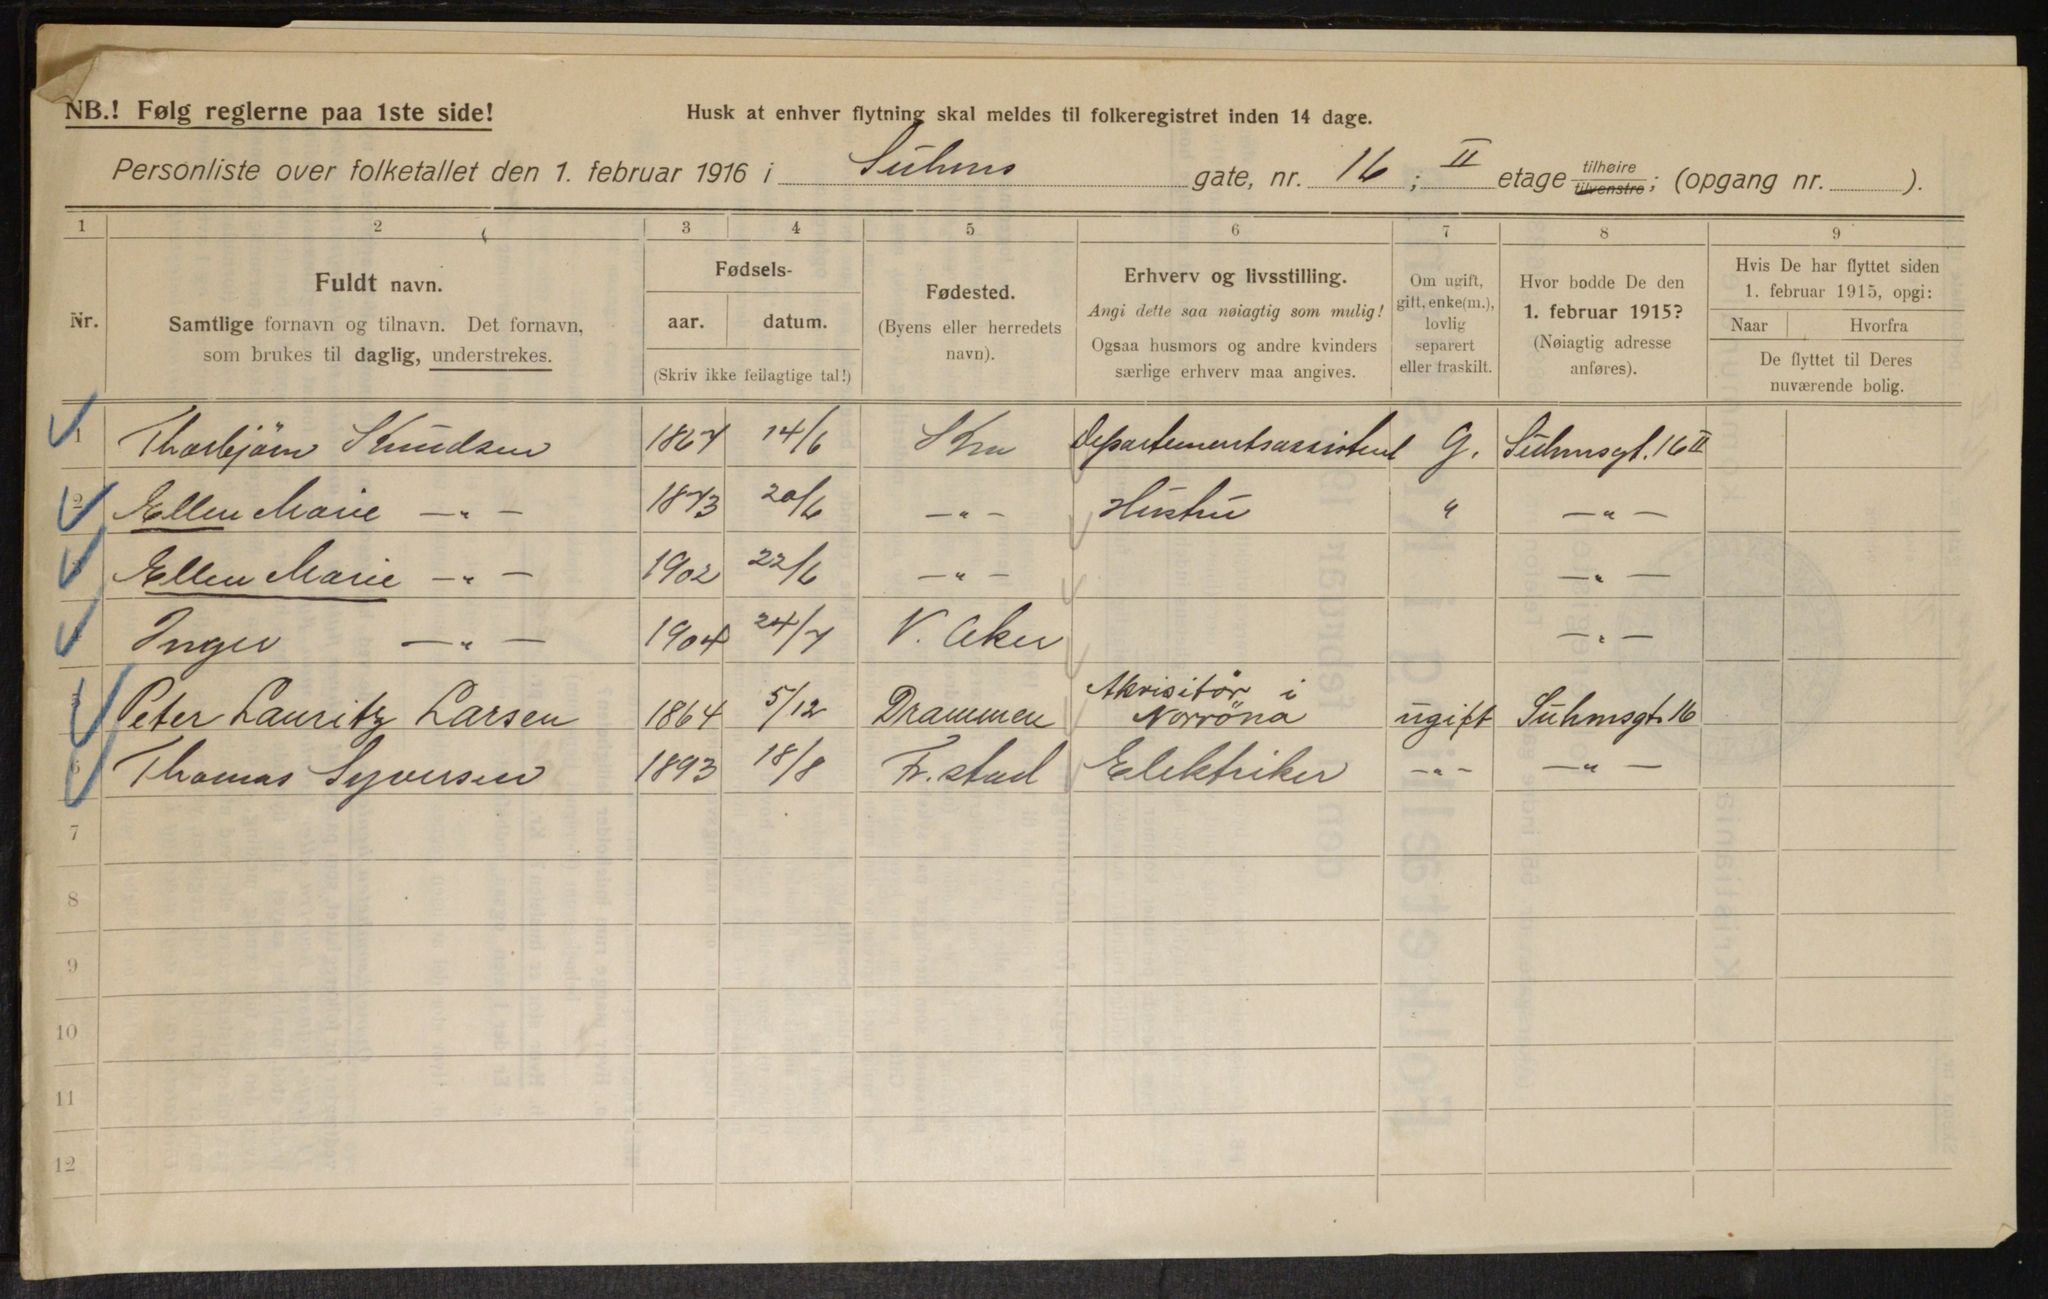 NB.! Følg reglerne paa 1ste side!
Husk at enhver flytning skal meldes til folkeregistret inden 14 dage.
Personliste over folketallet den 1. februar 1916 i Suhms gate, nr. 16; II etage tilhøire tilvenstre; (opgang nr. ).
1 2 3 4 5 6 7 8 9
Nr.
Fuldt navn.
Samtlige fornavn og tilnavn. Det fornavn,
som brukes til daglig, understrekes.
Fødsels-
aar. datum.
(Skriv ikke feilagtige tal!)
Fødested.
(Byens eller herredets
navn).
Erhverv og livsstilling.
Angi dette saa nøiagtig som mulig!
Ogsaa husmors og andre kvinders
særlige erhverv maa angives.
Om ugift,
gift, enke(m.),
lovlig
separert
eller fraskilt.
Hvor bodde De den
1. februar 1915?
(Nøiagtig adresse
anføres).
Hvis De har flyttet siden
1. februar 1915, opgi:
Naar Hvorfra
De flyttet til Deres
nuværende bolig.
1 Thorbjørn Knudsen 1867 14/6 Kra Departementsassistent G. Suhmsgt. 16 II
2 Ellen Marie —"— 1873 20/6 —"— Hustru " —"—
3 Ellen Marie —"— 1902 22/6 —"— —"—
4 Inger —"— 1904 24/7 V. Aker —"—
5 Peter Lauritz Larsen 1864 5/12 Drammen Akvisitør i Norrøna ugift Suhmsgt. 16
6 Thomas Syversen 1893 18/8 Fr.stad Elektriker —"— —"—
7
8
9
10
11
12